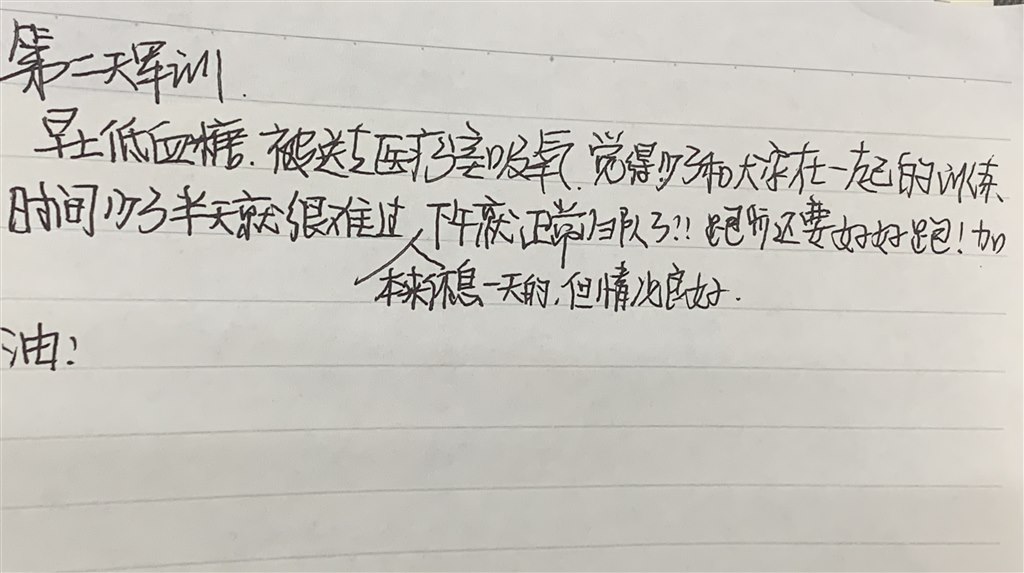 第二天军训.
早上低血糖.被送去医疗室吸氧.觉得少了和大家在一起的训练
时间少了半天就很难过 下午就正常归队了!! 跑步还要好好跑!加
本来休息一天的,但情况良好.
油!